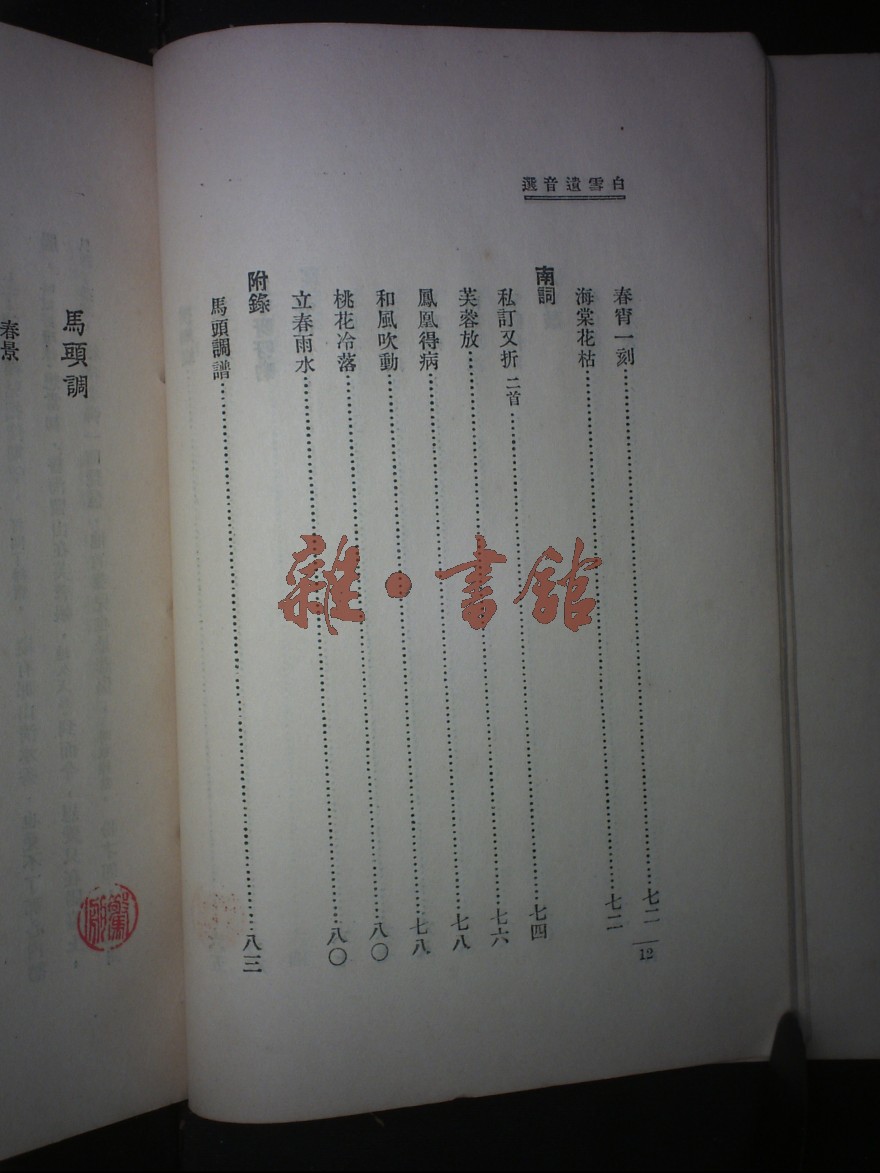 白雪遺音選
春宵一刻……七二
海棠花枯……七二
南詞
私訂又折 二首……七四
芙蓉放……七六
鳳凰得病……七八
和風吹動……七八
桃花冷落……八〇
立春雨水……八〇
附錄
馬頭調譜……八三
12
馬頭調
春景
雜·書館